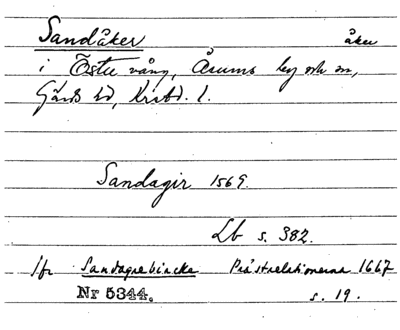 Sandåker åker
i Östre vång, Årums by och sn,
Gärds hd, Krist. l.
Sandagir 1569.
Lb s. 382.
Jfr Sandagrebincke Prästrelationerna 1667
Nr 5344. s. 19.